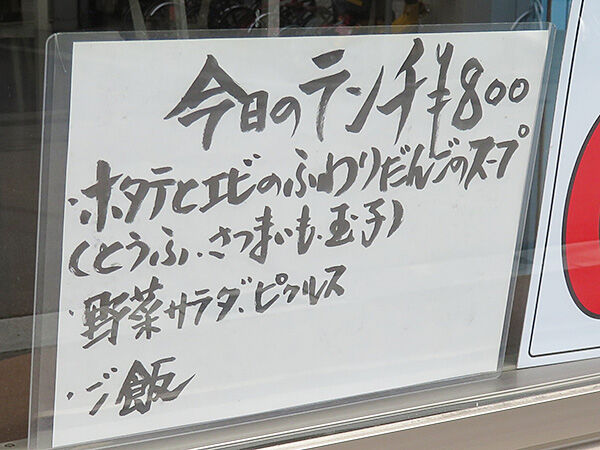 今日のランチ¥800
・ホタテとエビのふわりだんごのスープ
(とうふ、さつまいも、玉子)
・野菜サラダ、ピクルス
・ご飯